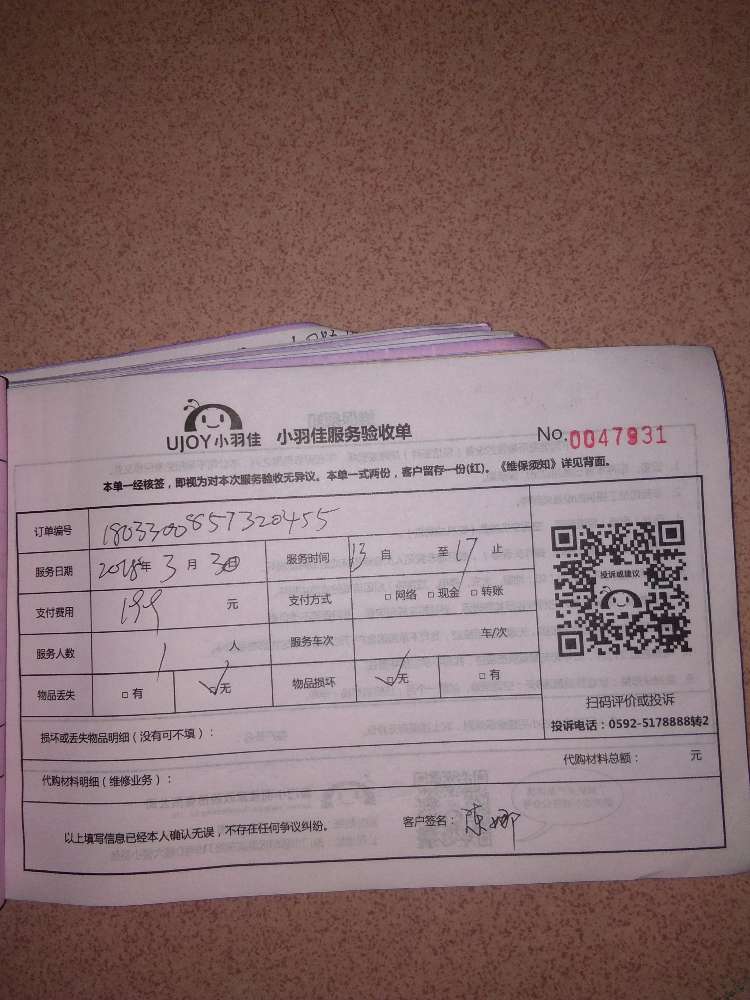 UJOY小羽佳 小羽佳服务验收单 No.0047931
本单一经核签，即视为对本次服务验收无异议。本单一式两份，客户留存一份(红)。《维保须知》详见背面。
订单编号 1803300857320455
服务日期 2018年 3月 30日 服务时间 13 自 至 17 止
支付费用 199 元 支付方式 □网络 □现金 □转账
投诉或建议
服务人数 1 人 服务车次 车/次
物品丢失 □有 ☑无 物品损坏 ☑无 □有
扫码评价或投诉
投诉电话：0592-5178888转2
损坏或丢失物品明细（没有可不填）：
代购材料明细（维修业务）： 代购材料总额： 元
以上填写信息已经本人确认无误，不存在任何争议纠纷。 客户签名：陈娜